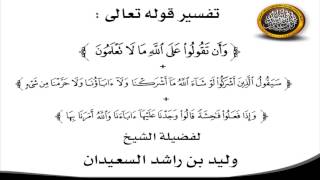 تفسير قوله تعالى :
﴿ وَأَن تَقُولُوا۟ عَلَى ٱللَّهِ مَا لَا تَعْلَمُونَ ﴾
+
﴿ سَيَقُولُ ٱلَّذِينَ أَشْرَكُوا۟ لَوْ شَآءَ ٱللَّهُ مَآ أَشْرَكْنَا وَلَآ ءَابَآؤُنَا وَلَا حَرَّمْنَا مِن شَىْءٍ ﴾
+
﴿ وَإِذَا فَعَلُوا۟ فَٰحِشَةً قَالُوا۟ وَجَدْنَا عَلَيْهَآ ءَابَآءَنَا وَٱللَّهُ أَمَرَنَا بِهَا ﴾
لفضيلة الشيخ
وليد بن راشد السعيدان